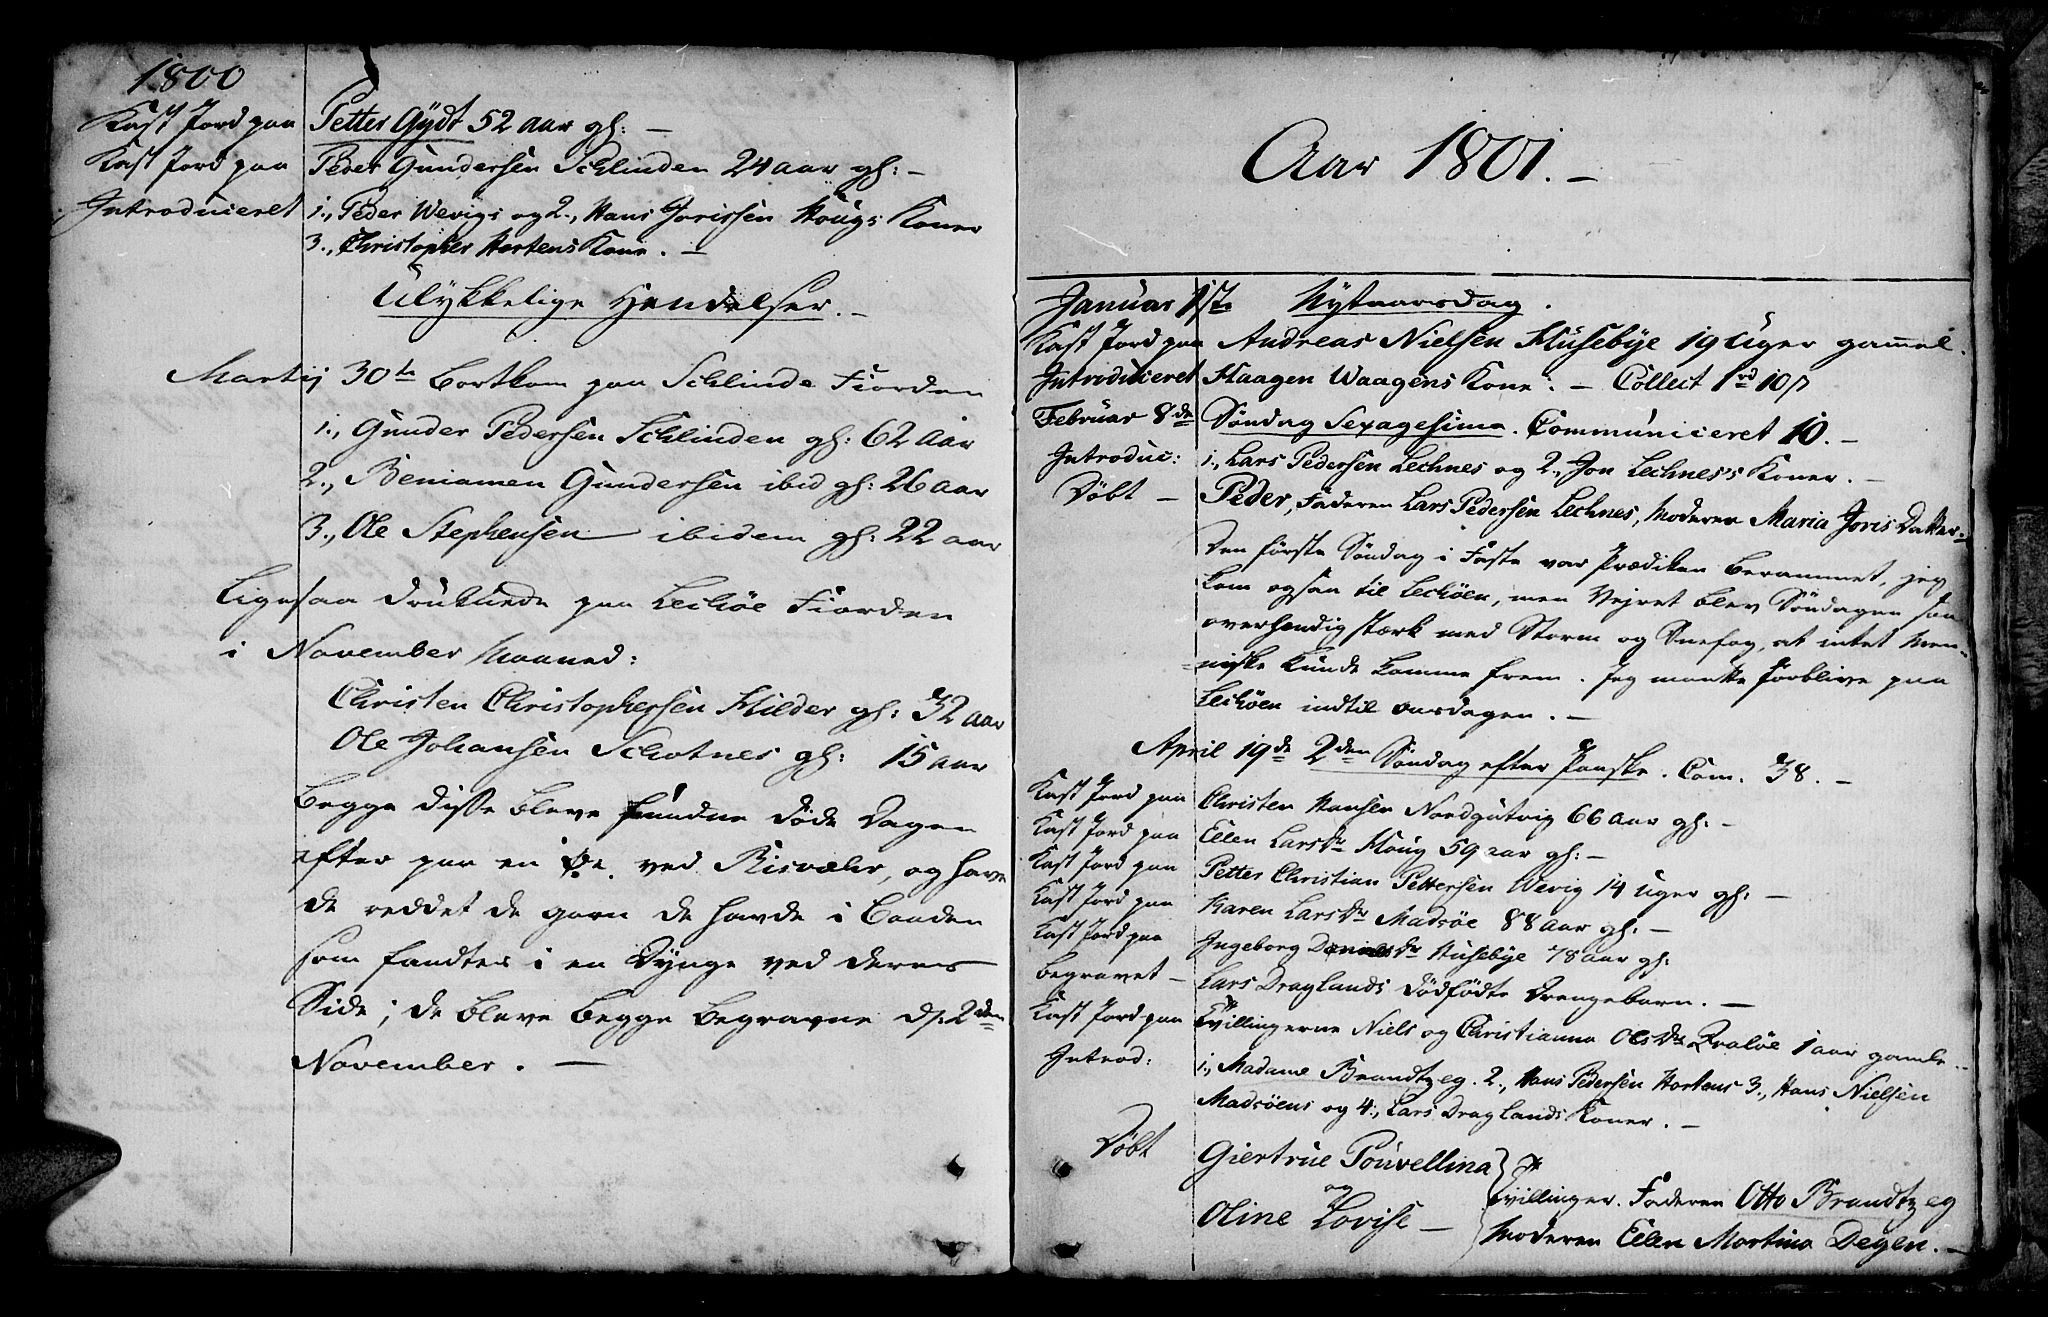 1800
Kast Jord paa Petter Gÿdt 52 aar gl: —
Kast Jord paa Peder Gundersen Schlinden 24 aar gl: —
Introduceret 1., Peder Wevigs og 2., Hans Jorissen Hougs Koner
3., Christopher Hortens Kone. —
Ulykkelige Hendelser. —
Martij 30te bortkom paa Schlinde Fiorden
1., Gunder Pedersen Schlinden gl: 62 Aar
2., Beniamen Gundersen ibid gl: 26 aar
3., Ole Stephensen ibidem gl: 22 aar
Ligesaa druknede paa Lechöe Fiorden
i November Maaned:
Christen Christophersen Hilder gl: 32 aar
Ole Johansen Schotnes gl: 15 aar
begge disse bleve fundne døde Dagen
efter paa en Øe ved Risvæhr, og havde
de reddet de garn de havde i Baaden
som fandtes i en Dynge ved deres
Side; de bleve begge begravne d: 2den
November. —
Aar 1801. —
Januar 1ste Nÿtaarsdag.
Kast Jord paa Andreas Nielsen Husebÿe 19 Uger gammel.
Introduceret Haagen Waagens Kone. — Collect 1rd 10 s
Februar 8de Søndag Sexagesima. Communiceret 10. —
Introduc: 1., Lars Pedersen Lechnes og 2., Jon Lechnes's Koner. —
Døbt — Peder, Faderen Lars Pedersen Lechnes, Moderen Maria Joris Datter. —
Den første Søndag i Faste var Prædiken berammet, jeg
kom ogsaa til Lechöen, men Vejret blev Søndagen saa
overhendig stærk med Storm og Snefog, at intet Men-
niske kunde komme frem. Jeg maatte forblive paa
Lechöen indtil onsdagen. —
April 19de 2den Søndag efter Paaske. Com. 38. —
Kast Jord paa Christen Hansen Nordgutvig 66 aar gl: —
Kast Jord paa Ellen Larsdr Houg 59 aar gl: —
Kast Jord paa Petter Christian Pettersen Wevig 14 Uger gl: —
Kast Jord paa Karen Larsdr Madsöe 88 aar gl: —
Kast Jord paa Ingeborg Danielsdr Husebÿe 78 aar gl:
begravet — Lars Draglands dödfödte Drengebarn. —
Kast Jord paa Tvillingerne Niels og Christianna Olsdr Qvalöe 1 aar gamle. —
Introd: 1., Madame Brandtzeg. 2., Hans Pedersen Hortens 3., Hans Nielsen
Madsöens og 4., Lars Draglands Koner. —
Døbt Giertrue Pouvellina
og
Oline Lovise —
Tvillinger. Faderen Otto Brandtzeg
Moderen Ellen Martina Degen. —